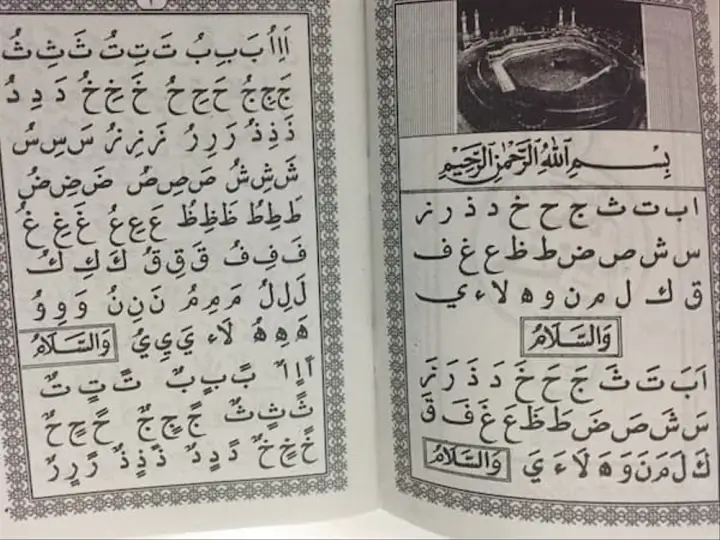 بِسْمِ اللهِ الرَّحْمٰنِ الرَّحِيْمِ
ا ب ت ث ج ح خ د ذ ر ز
س ش ص ض ط ظ ع غ ف
ق ك ل م ن و ه لا ء ي
وَالسَّلَامُ
اَ بَ تَ ثَ جَ حَ خَ دَ ذَ رَ زَ
سَ شَ صَ ضَ طَ ظَ عَ غَ فَ قَ
كَ لَ مَ نَ وَ هَ لَا ءَ يَ وَالسَّلَامُ
اَ اِ اُ بَ بِ بُ تَ تِ تُ ثَ ثِ ثُ
جَ جِ جُ حَ حِ حُ خَ خِ خُ دَ دِ دُ
ذَ ذِ ذُ رَ رِ رُ زَ زِ زُ سَ سِ سُ
شَ شِ شُ صَ صِ صُ ضَ ضِ ضُ
طَ طِ طُ ظَ ظِ ظُ عَ عِ عُ غَ غِ غُ
فَ فِ فُ قَ قِ قُ كَ كِ كُ
لَ لِ لُ مَ مِ مُ نَ نِ نُ وَ وِ وُ
هَ هِ هُ لَا ء يَ يِ يُ وَالسَّلَامُ
اً اٍ اٌ بً بٍ بٌ تً تٍ تٌ
ثً ثٍ ثٌ جً جٍ جٌ حً حٍ حٌ
خً خٍ خٌ دً دٍ دٌ ذً ذٍ ذٌ رً رٍ رٌ